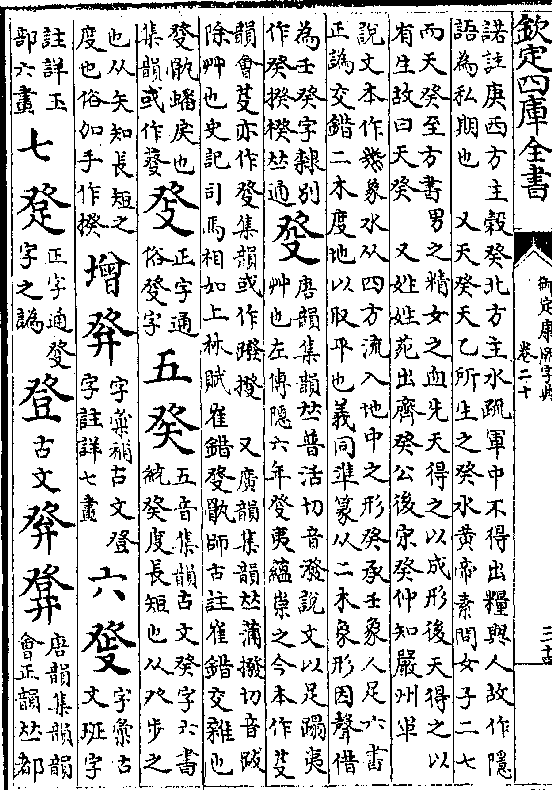 欽定四庫全書
御定康熙字典
卷二十
諾註庚西方主榖癸北方主水疏軍中不得出糧與人故作隱
語為私期也 又天癸天乙所生之癸水黄帝素問女子二七
而天癸至方書男之精女之血先天得之以成形後天得之以
有生故曰天癸 又姓姓苑出齊癸公後宋癸仲知嚴州軍
說文本作象水从四方流入地中之形癸承壬象人足六書
正譌交錯二木度地以取平也義同準篆从二木象形因聲借
為壬癸字隸别
作癸揆楑𠀤通
癹
唐韻集韻𠀤普活切音潑說文以足蹋夷
艸也左傳隱六年癹夷蘊崇之今本作芟
韻會芟亦作癹集韻或作蹳撥 又廣韻集韻𠀤蒲撥切音跋
除艸也史記司馬相如上林賦崔錯癹骫師古註崔錯交雜也
癹骫蟠戾也
集韻或作蕟
正字通
俗發字
五
五音集韻古文癸字六書
統癸度長短也从癶步之
也从矢知長短之
度也俗加手作揆
增
字彙補古文登
字註詳七畫
六
字彙古
文班字
註詳玉
部六畫
七
正字通發
字之譌
登
古文
唐韻集韻韻
會正韻𠀤都